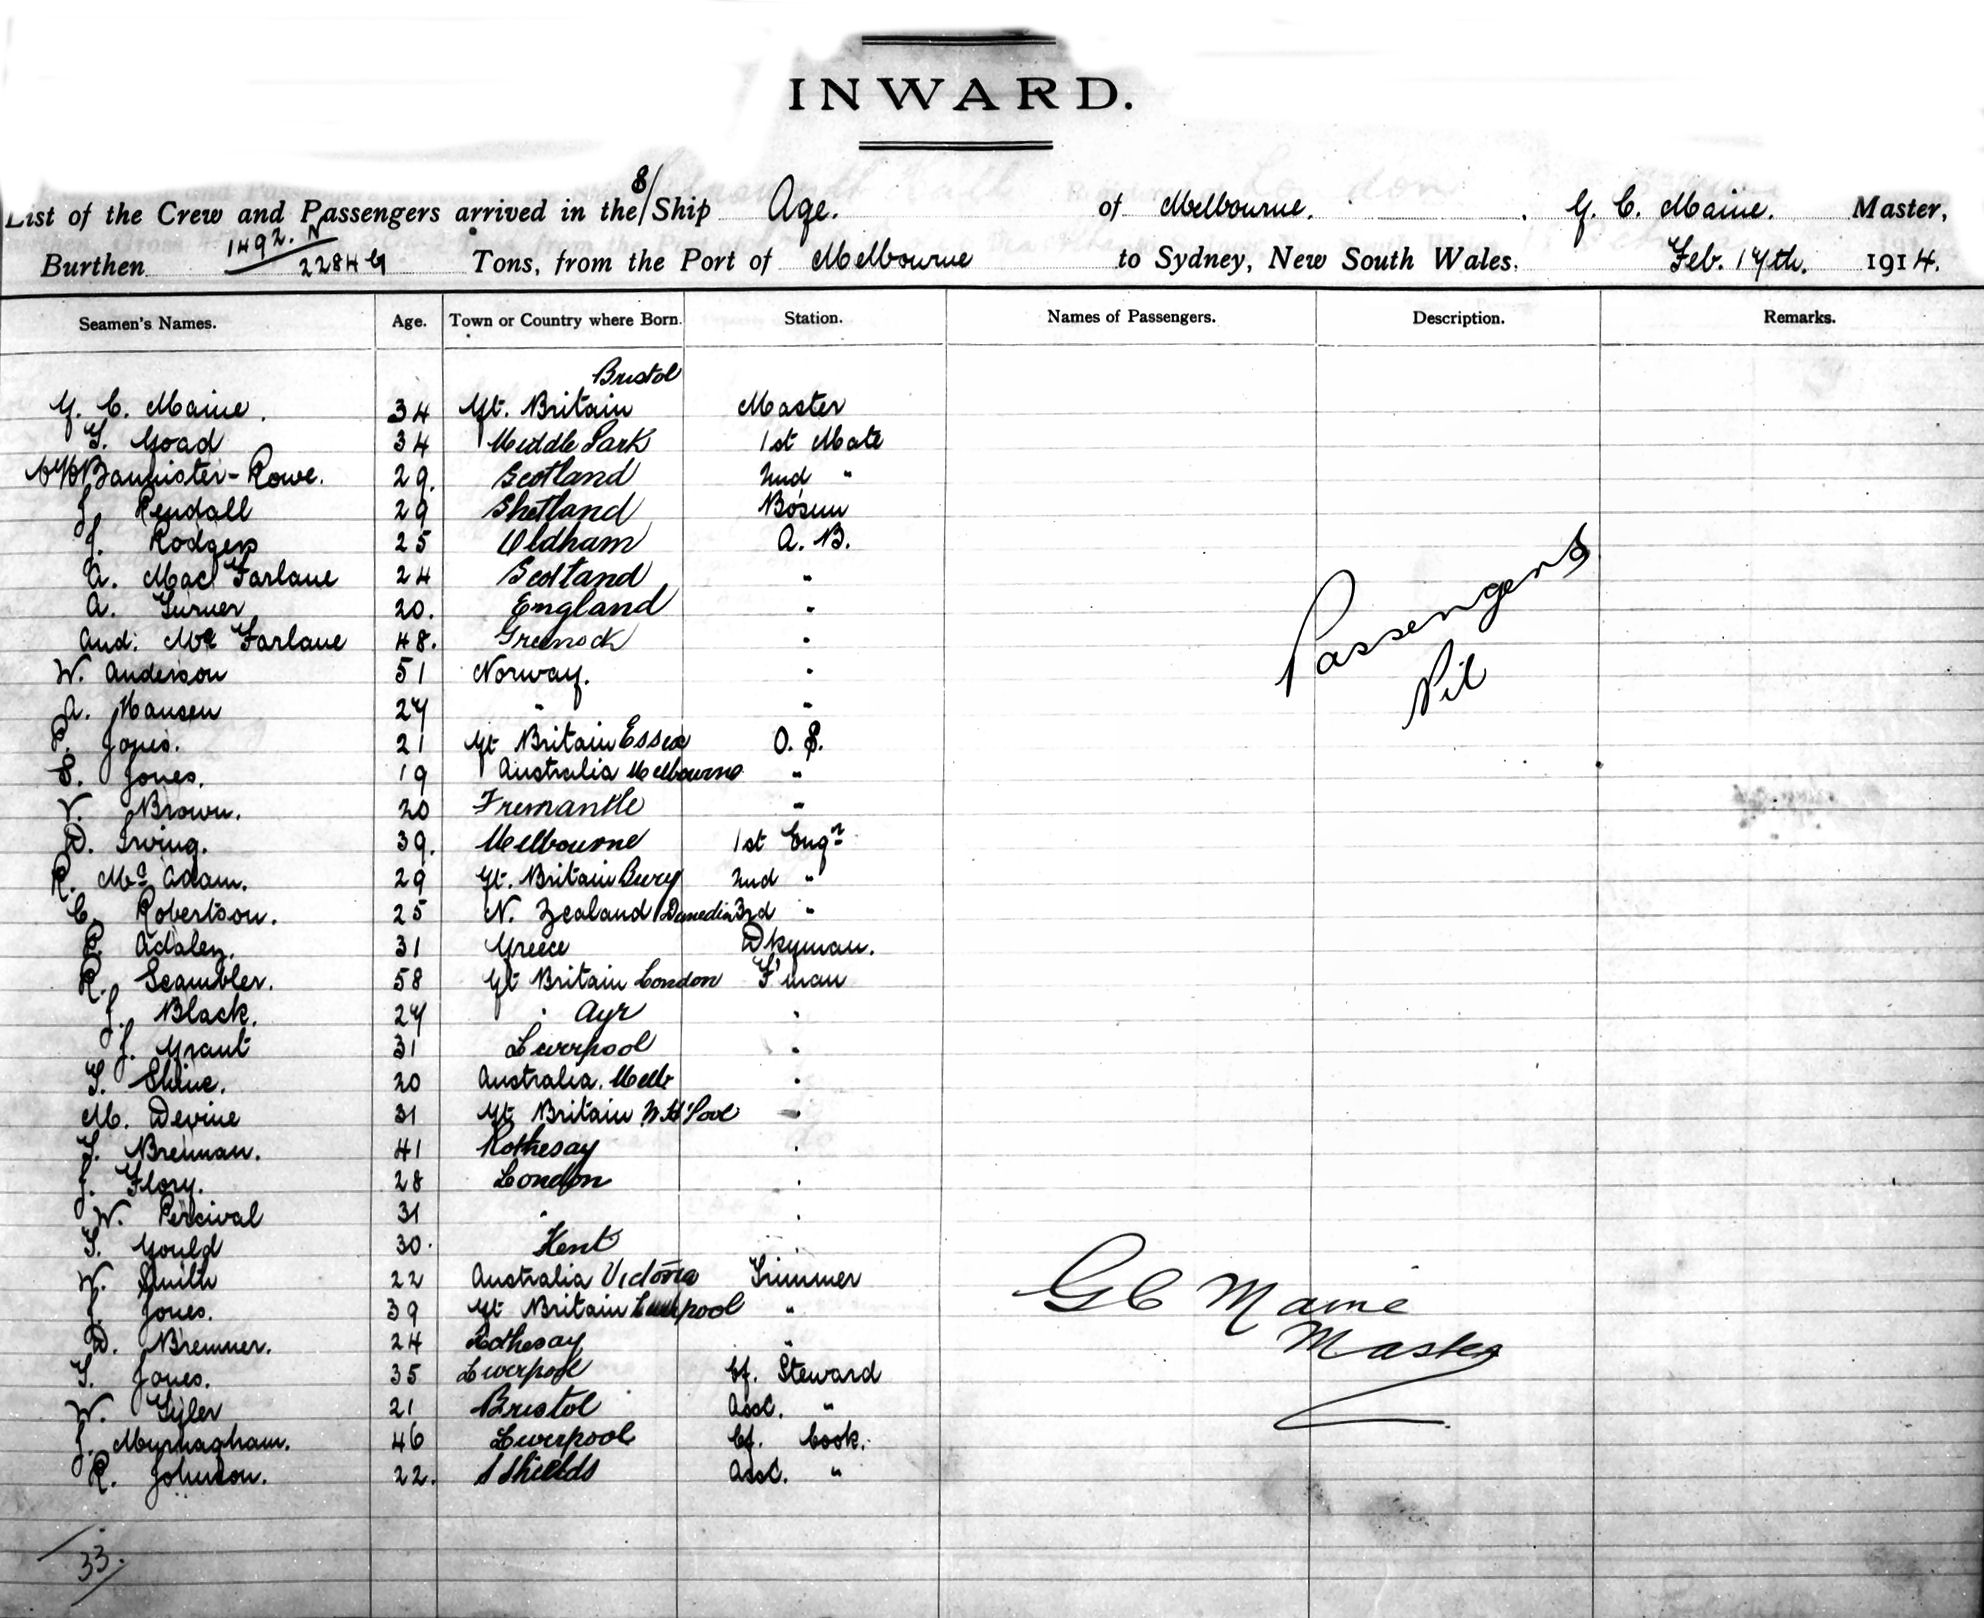 INWARD.
List of the Crew and Passengers arrived in the S/Ship Age. of Melbourne. G. C. Maine. Master,
Burthen 1492. N 2284 G Tons, from the Port of Melbourne to Sydney, New South Wales. Feb. 17th. 1914.
Seamen's Names. Age. Town or Country where Born. Station. Names of Passengers. Description. Remarks.
Bristol
G. C. Maine. 34 Gt. Britain Master
T. Goad 34 Middle Park 1st Mate
Bannister-Rowe. 29. Scotland 2nd "
J. Rendall 29 Shetland Bosun
J. Rodgers 25 Oldham A. B.
A. Mac Farlane 24 Scotland "
A. Turner 20. England "
And: Mc Farlane 48. Greenock "
W. Anderson 51 Norway. "
A. Hansen 27 " "
P. Jones. 21 Gt Britain Essex O. S.
S. Jones. 19 Australia Melbourne "
V. Brown. 20 Fremantle "
D. Irving. 39. Melbourne 1st Engr
R. Mc Adam. 29 Gt. Britain Bury 2nd "
C. Robertson. 25 N. Zealand Dunedin 3rd "
P. Adaley. 31 Greece Dkyman.
R. Scambler. 58 Gt Britain London F'man
J. Black. 27 " Ayr "
J. Grant 31 Liverpool "
T. Shine. 20 Australia. Melb "
M. Devine 31 Gt Britain W H'Pool "
T. Brennan. 41 Rothesay "
J. Flory. 28 London "
W. Percival 31 " "
T. Gould 30. Kent "
W. Smith 22 Australia Victoria Trimmer
J. Jones. 39 Gt Britain Liverpool "
D. Bremner. 24 Rothesay "
T. Jones. 35 Liverpool Cf. Steward
W. Tyler 21 Bristol Asst. "
J. Myrnagham. 46 Liverpool Cf. Cook.
R. Johnson. 22. S Shields Asst. "
Passengers
Nil
G C Maine
Master
33.